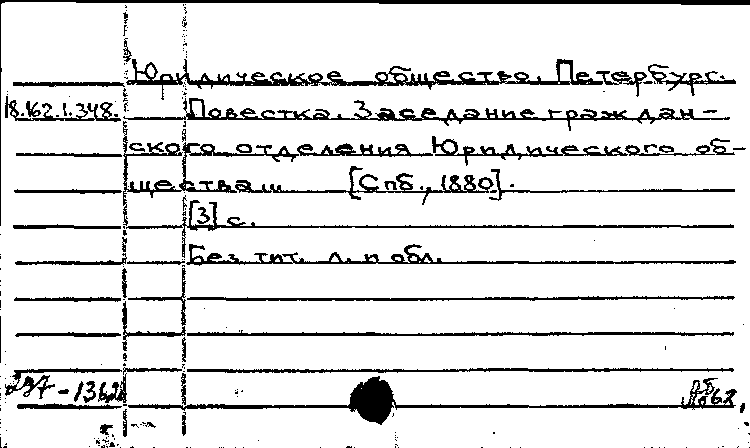 Юридическое общество. Петербург.
18.162.1.348. Повестка. Заседание граждан-
ского отделения Юридического об-
щества ... [Спб., 1880].
[3] с.
Без тит. л. и обл.